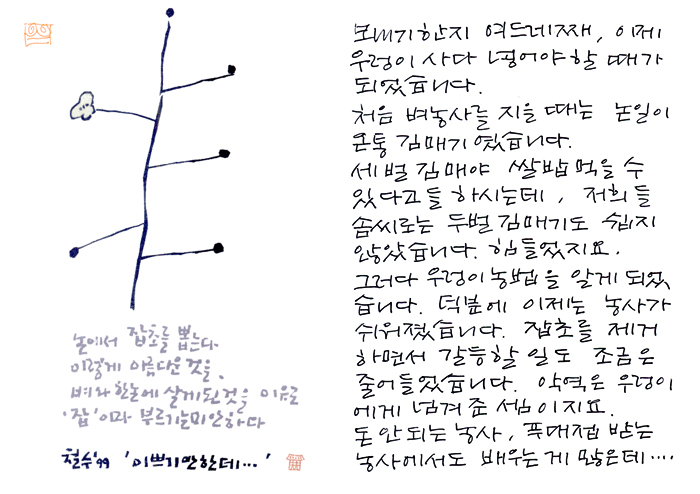 논에서 잡초를 뽑는다
이렇게 아름다운 것을,
벼와 한논에 살게된 것을 이유로
'잡'이라 부르기는 미안하다
철수'99 '이쁘기만한데…'
모내기한지 여드레째, 이제
우렁이 사다 넣어야 할 때가
되었습니다.
처음 벼농사를 지을 때는 논일이
온통 김매기였습니다.
세벌 김매야 쌀밥 먹을 수
있다고들 하시는데, 저희들
솜씨로는 두벌 김매기도 쉽지
않았습니다. 힘들었지요.
그러다 우렁이농법을 알게 되었
습니다. 덕분에 이제는 농사가
쉬워졌습니다. 잡초를 제거
하면서 갈등할 일도 조금은
줄어들었습니다. 악역은 우렁이
에게 넘겨준 셈이지요.
돈 안되는 농사, 푸대접 받는
농사에서도 배우는 게 많은데‥‥